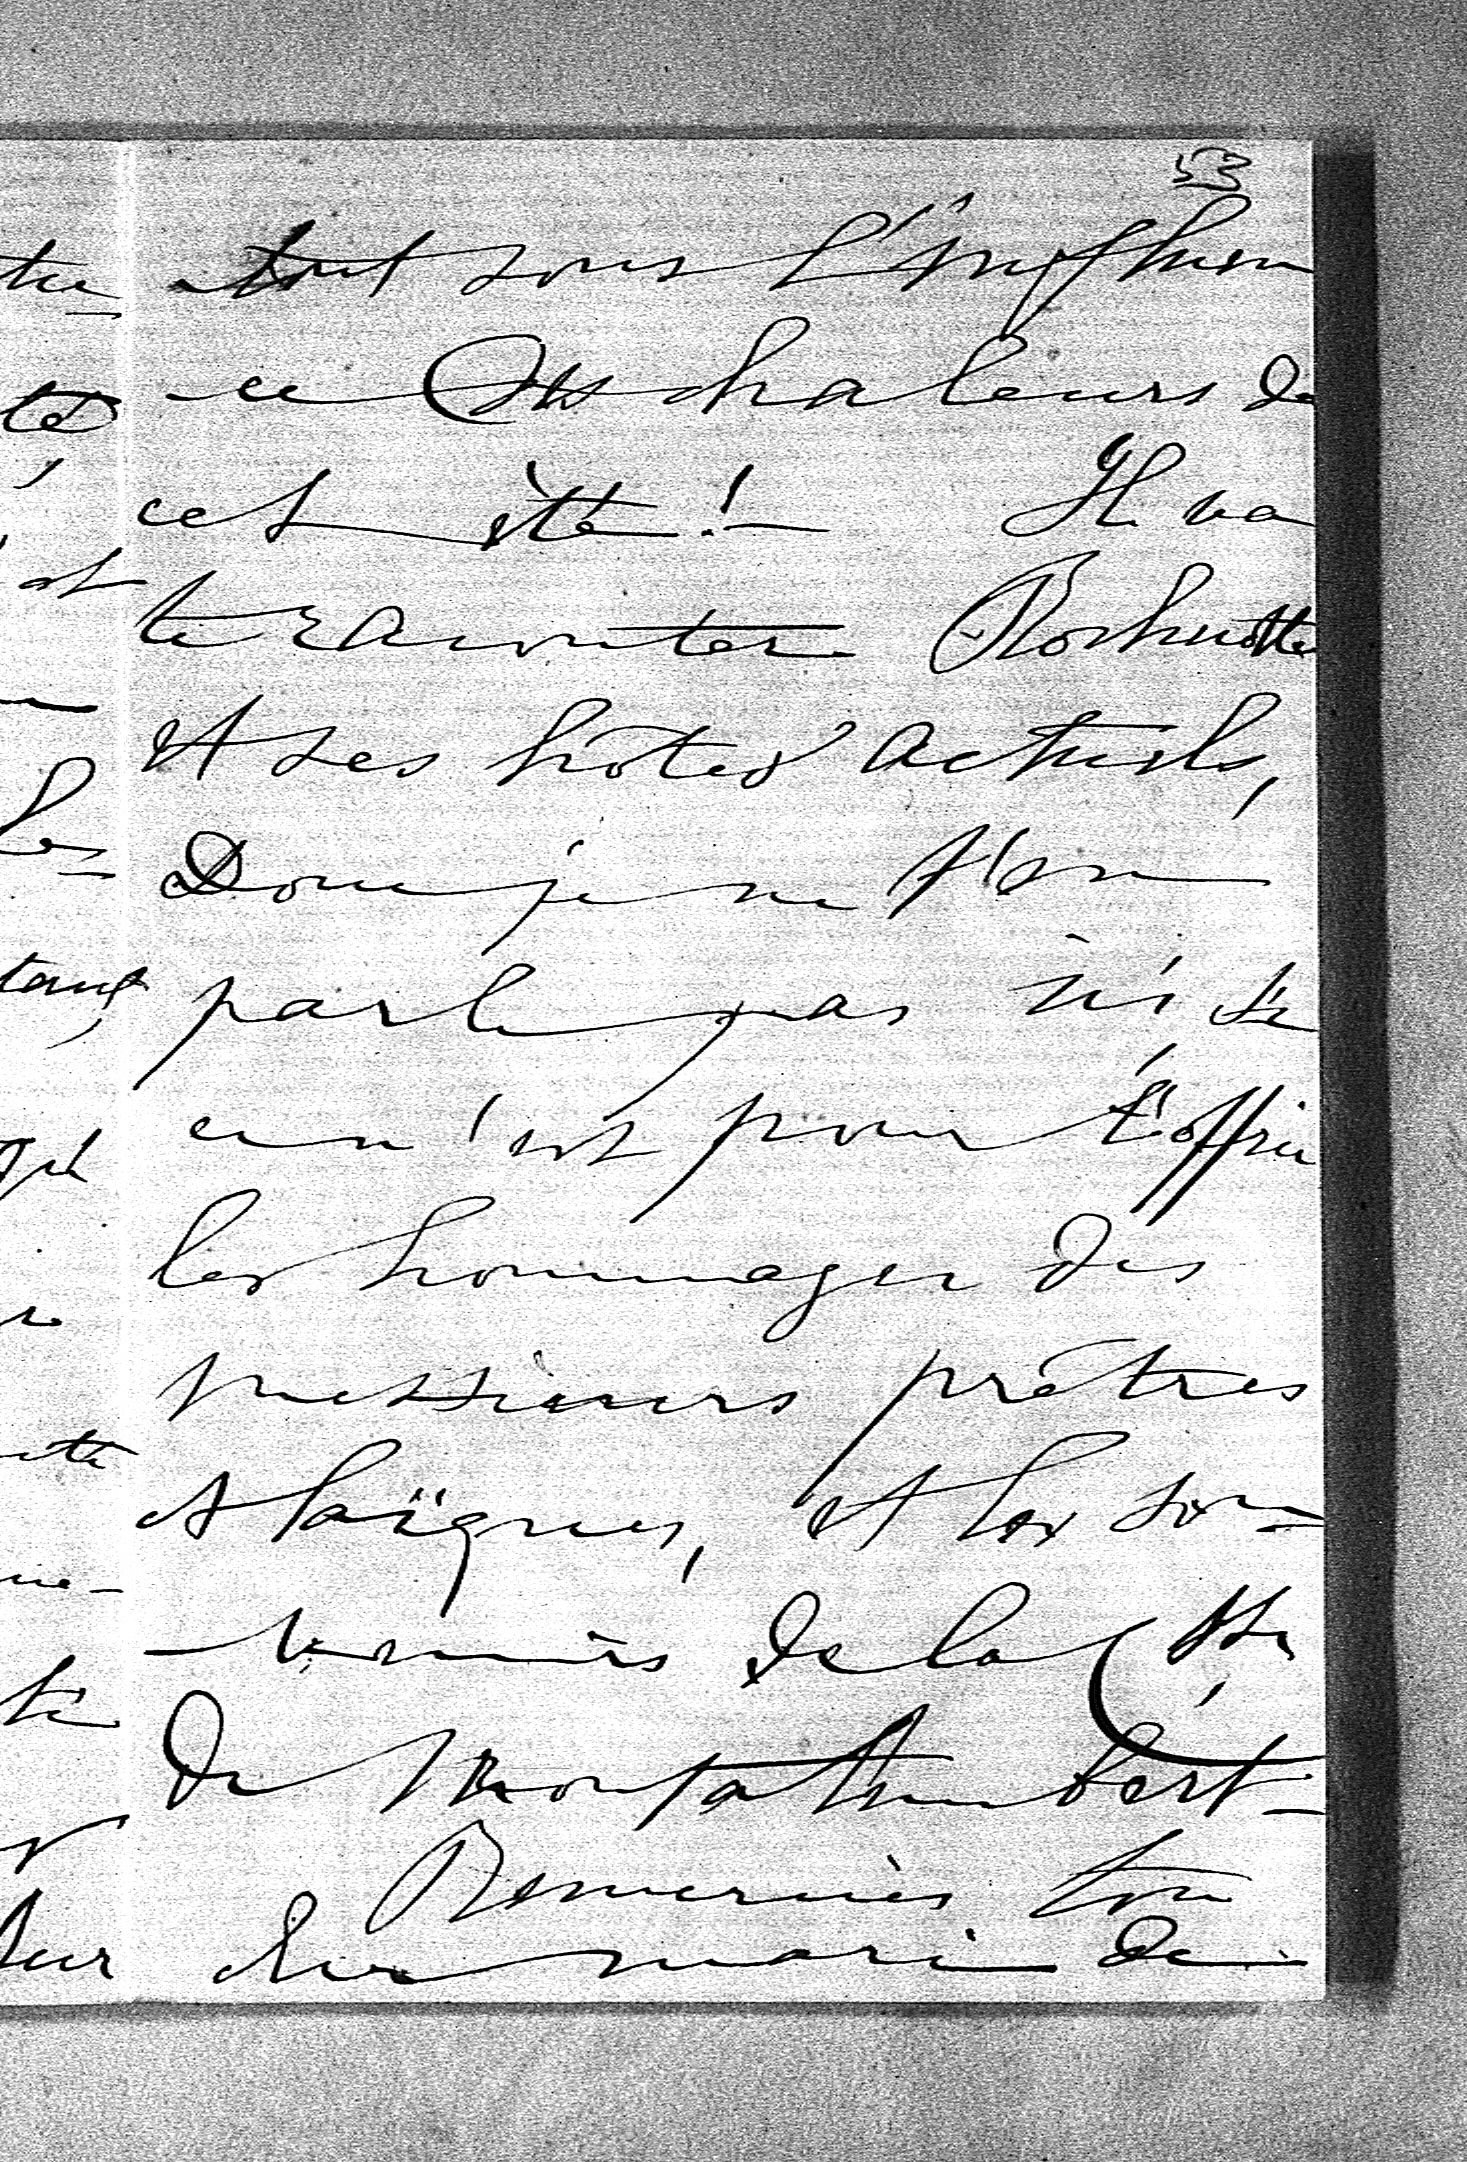 53
tout sous l'influen
ce des chaleurs de
cet été ! - Il va
te raconter Rochecotte
et ses hôtes actuels,
Donc je ne t'en
parle pas ici si
ce n'est pour t'offrir
les hommages des
messieurs prêtres
et laïques, et les sou=
venirs de la Ctesse
de Montalembert -
Remercies ton
cher mari de